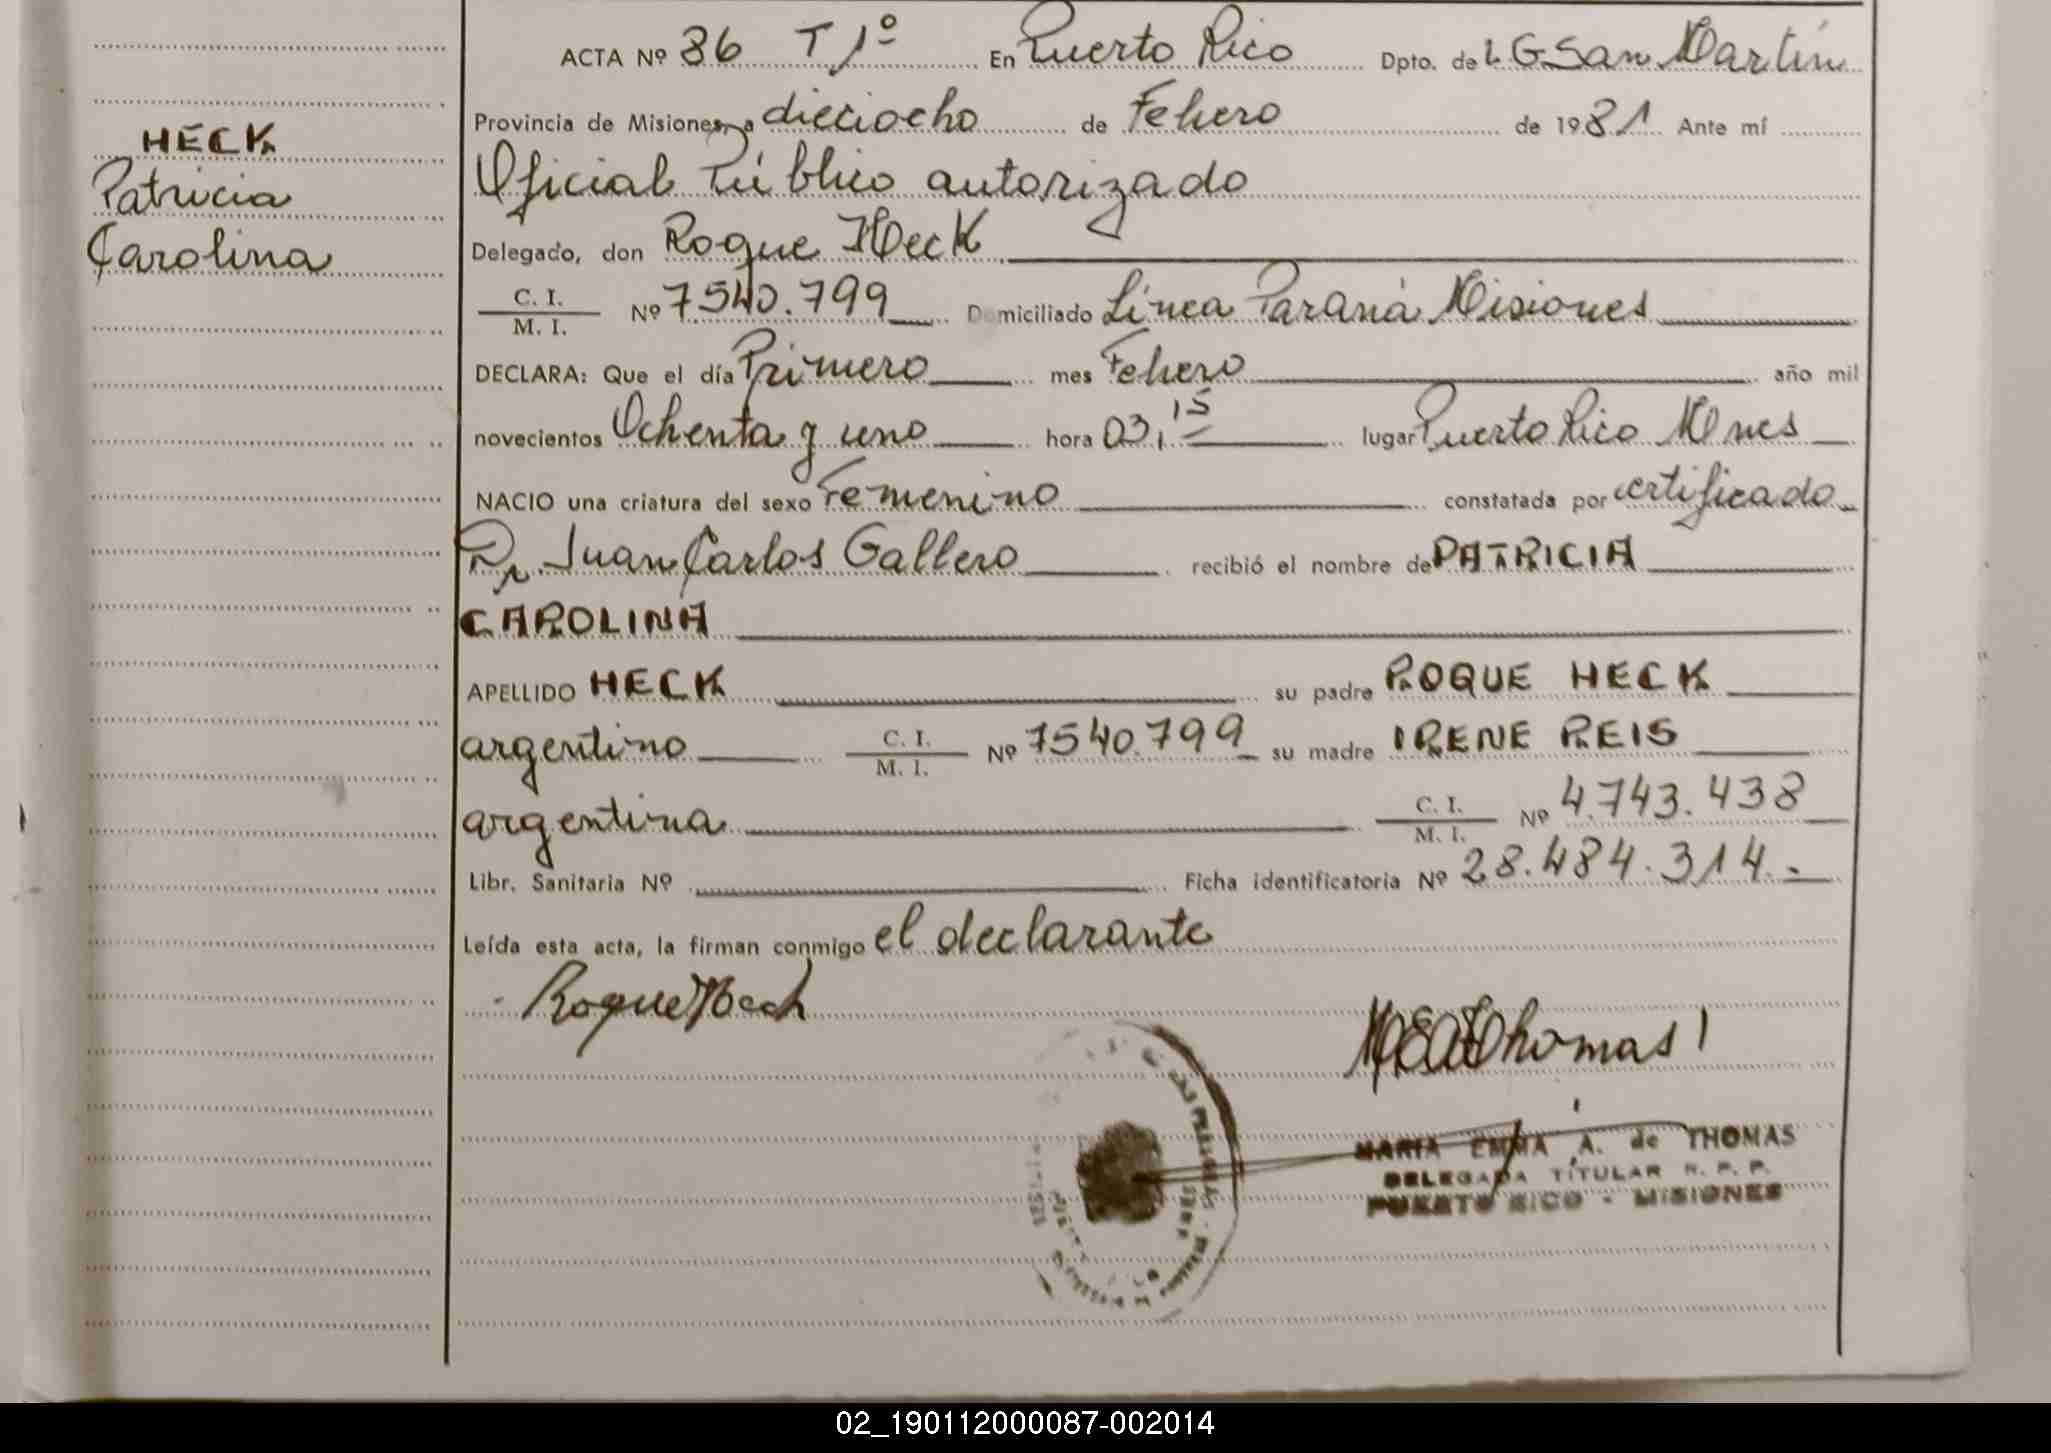 ACTA Nº 86 T 1º En Puerto Rico Dpto. de L G San Martín
Provincia de Misiones, a dieciocho de Febrero de 1981 Ante mí
HECK
Patricia
Carolina
Oficial Público autorizado
Delegado, don Roque Heck
C. I.
M. I.
Nº 7540.799 Domiciliado Línea Paraná Misiones
DECLARA: Que el día Primero mes Febrero año mil
novecientos Ochenta y uno hora 03,15 lugar Puerto Rico Mnes
NACIO una criatura del sexo Femenino constatada por certificado
Dr. Juan Carlos Gallero recibió el nombre de PATRICIA
CAROLINA
APELLIDO HECK su padre ROQUE HECK
argentino C. I. M. I. Nº 7540.799 su madre IRENE REIS
argentina C. I. M. I. Nº 4.743.438
Libr. Sanitaria Nº Ficha identificatoria Nº 28.484.314.-
Leída esta acta, la firman conmigo el declarante
Roque Heck
MEAThomas
MARIA EMMA A. de THOMAS
DELEGADA TITULAR R. P. P.
PUERTO RICO - MISIONES
02_190112000087-002014